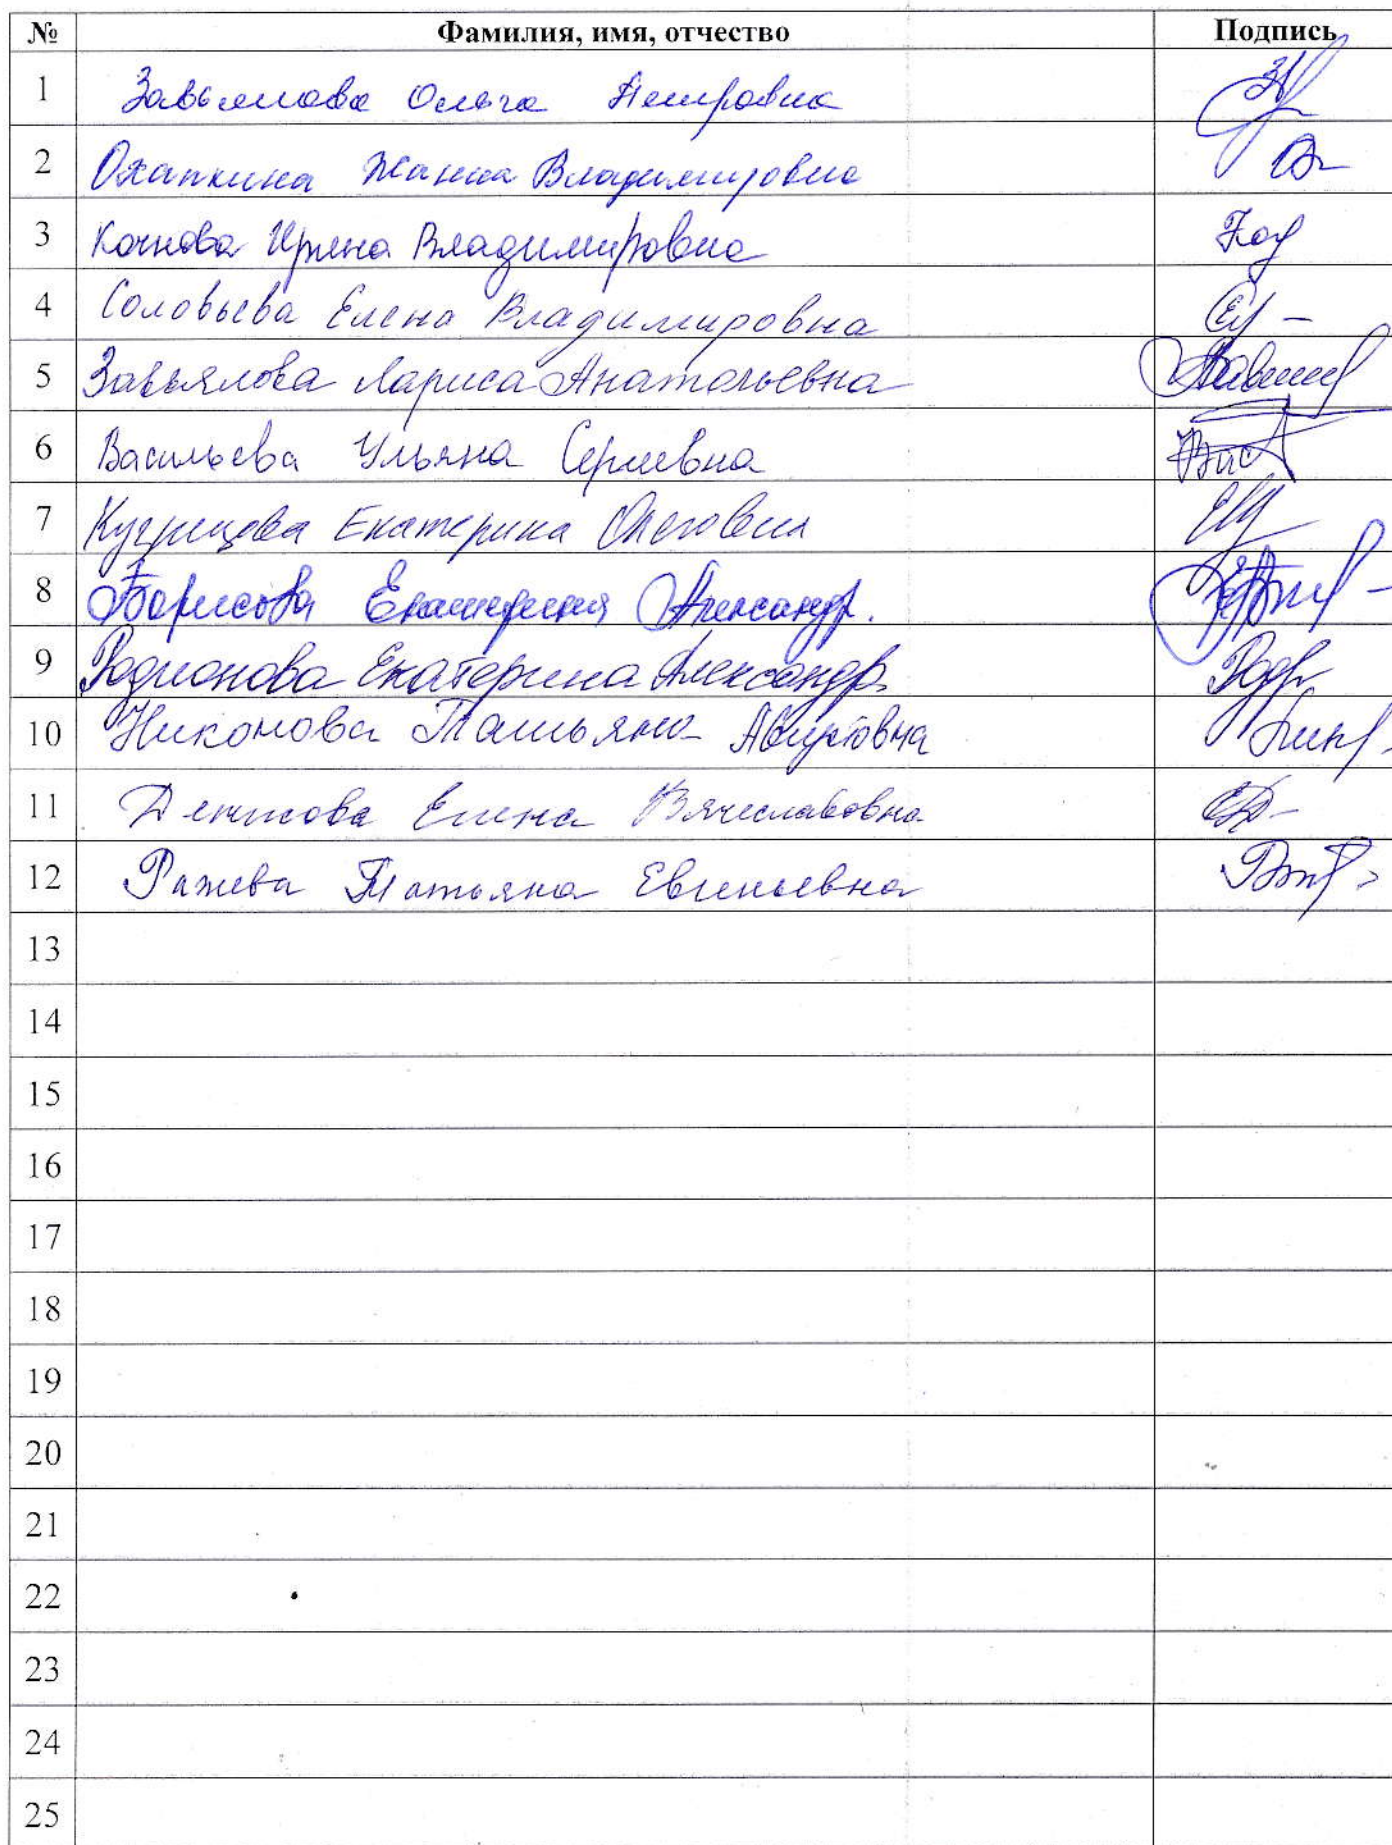 № Фамилия, имя, отчество Подпись
1 Завьялова Ольга Петровна
2 Охапкина Жанна Владимировна
3 Кочнова Ирина Владимировна
4 Соловьева Елена Владимировна
5 Завьялова Лариса Анатольевна
6 Васильева Ульяна Сергеевна
7 Кугрышева Екатерина Олеговна
8 Борисова Екатерина Александр.
9 Родионова Екатерина Александр.
10 Никонова Татьяна
11 Денисова Елена Вячеславовна
12 Ражева Татьяна Евгеньевна
13
14
15
16
17
18
19
20
21
22
23
24
25